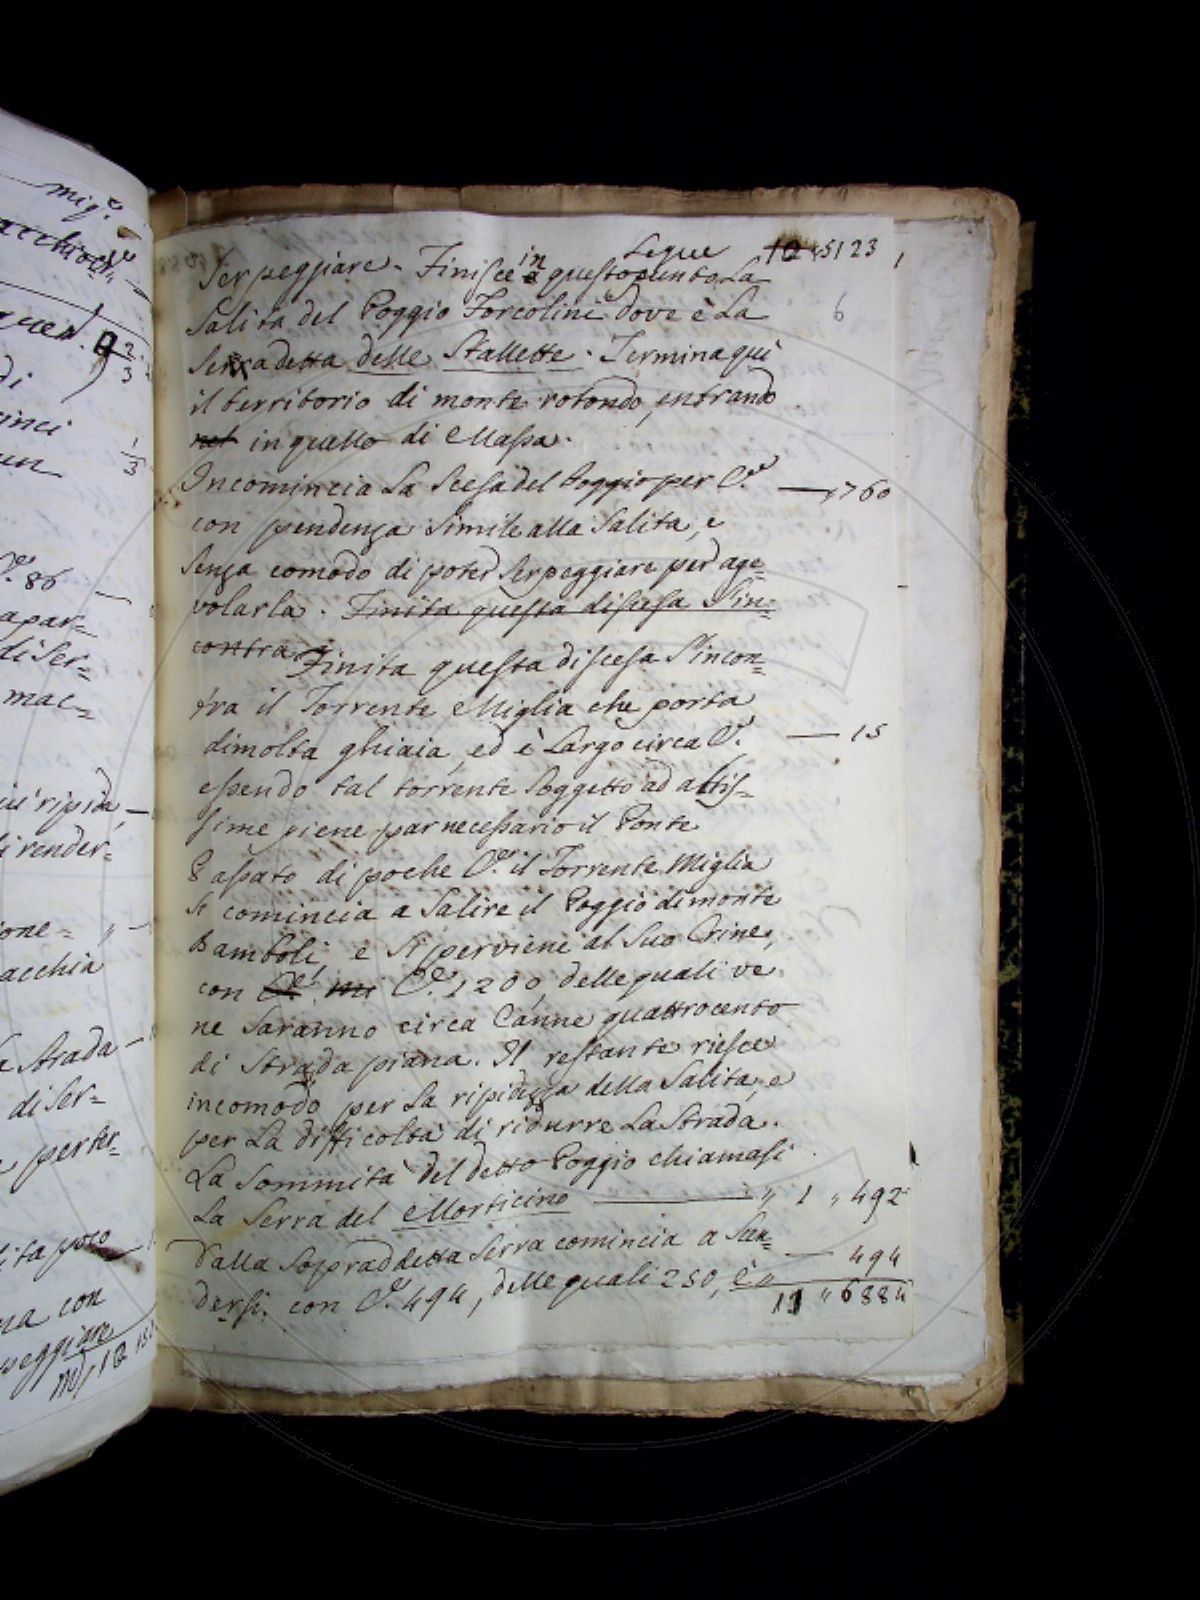 mig.e
acchioni
gues.
2/3
di
inci
1/3
un
C.e 86
apar=
di Ser=
mac=
ripida,
di render=
ione=
acchia
a Strada
di Ser=
perter=
lita poco
na con
peggiare
Segue 10 „ 5123
Serpeggiare. Finisce in questo punto La
6
Salita del Poggio Forcoline dove è La
Serra detta delle Stallette. Termina qui
il territorio di monte rotondo, entrando
nel in quello di Massa.
Incomincia La Scesa del Poggio per C.e — „ 760
con pendenza Simile alla Salita, e
Senza comodo di poter Serpeggiare per age=
volarla. Finita questa discesa S'in=
contra Finita questa discesa S'incon=
tra il Torrente Miglia che porta
dimolta ghiaia, ed è Largo circa C.e — 15
essendo tal torrente Soggetto ad altis=
sime piene par necessario il Ponte
Passato di poche C.e il Torrente Miglia
Si comincia a Salire il Poggio di monte
Bamboli, e Si perviene al Suo Crine,
con C.e mi C.e 1200, delle quali ve
ne Saranno circa Canne quattrocento
di Strada piana. Il restante riesce
incomodo per La ripidezza della Salita, e
per La difficoltà di ridurre La Strada.
La Sommità del detto Poggio chiamasi
La Serra del Morticino — „ 1 „ 492
Dalla Sopraddetta Serra comincia a Scen= — 494
dersi con C.e 494, delle quali 250, è
11 „ 6884